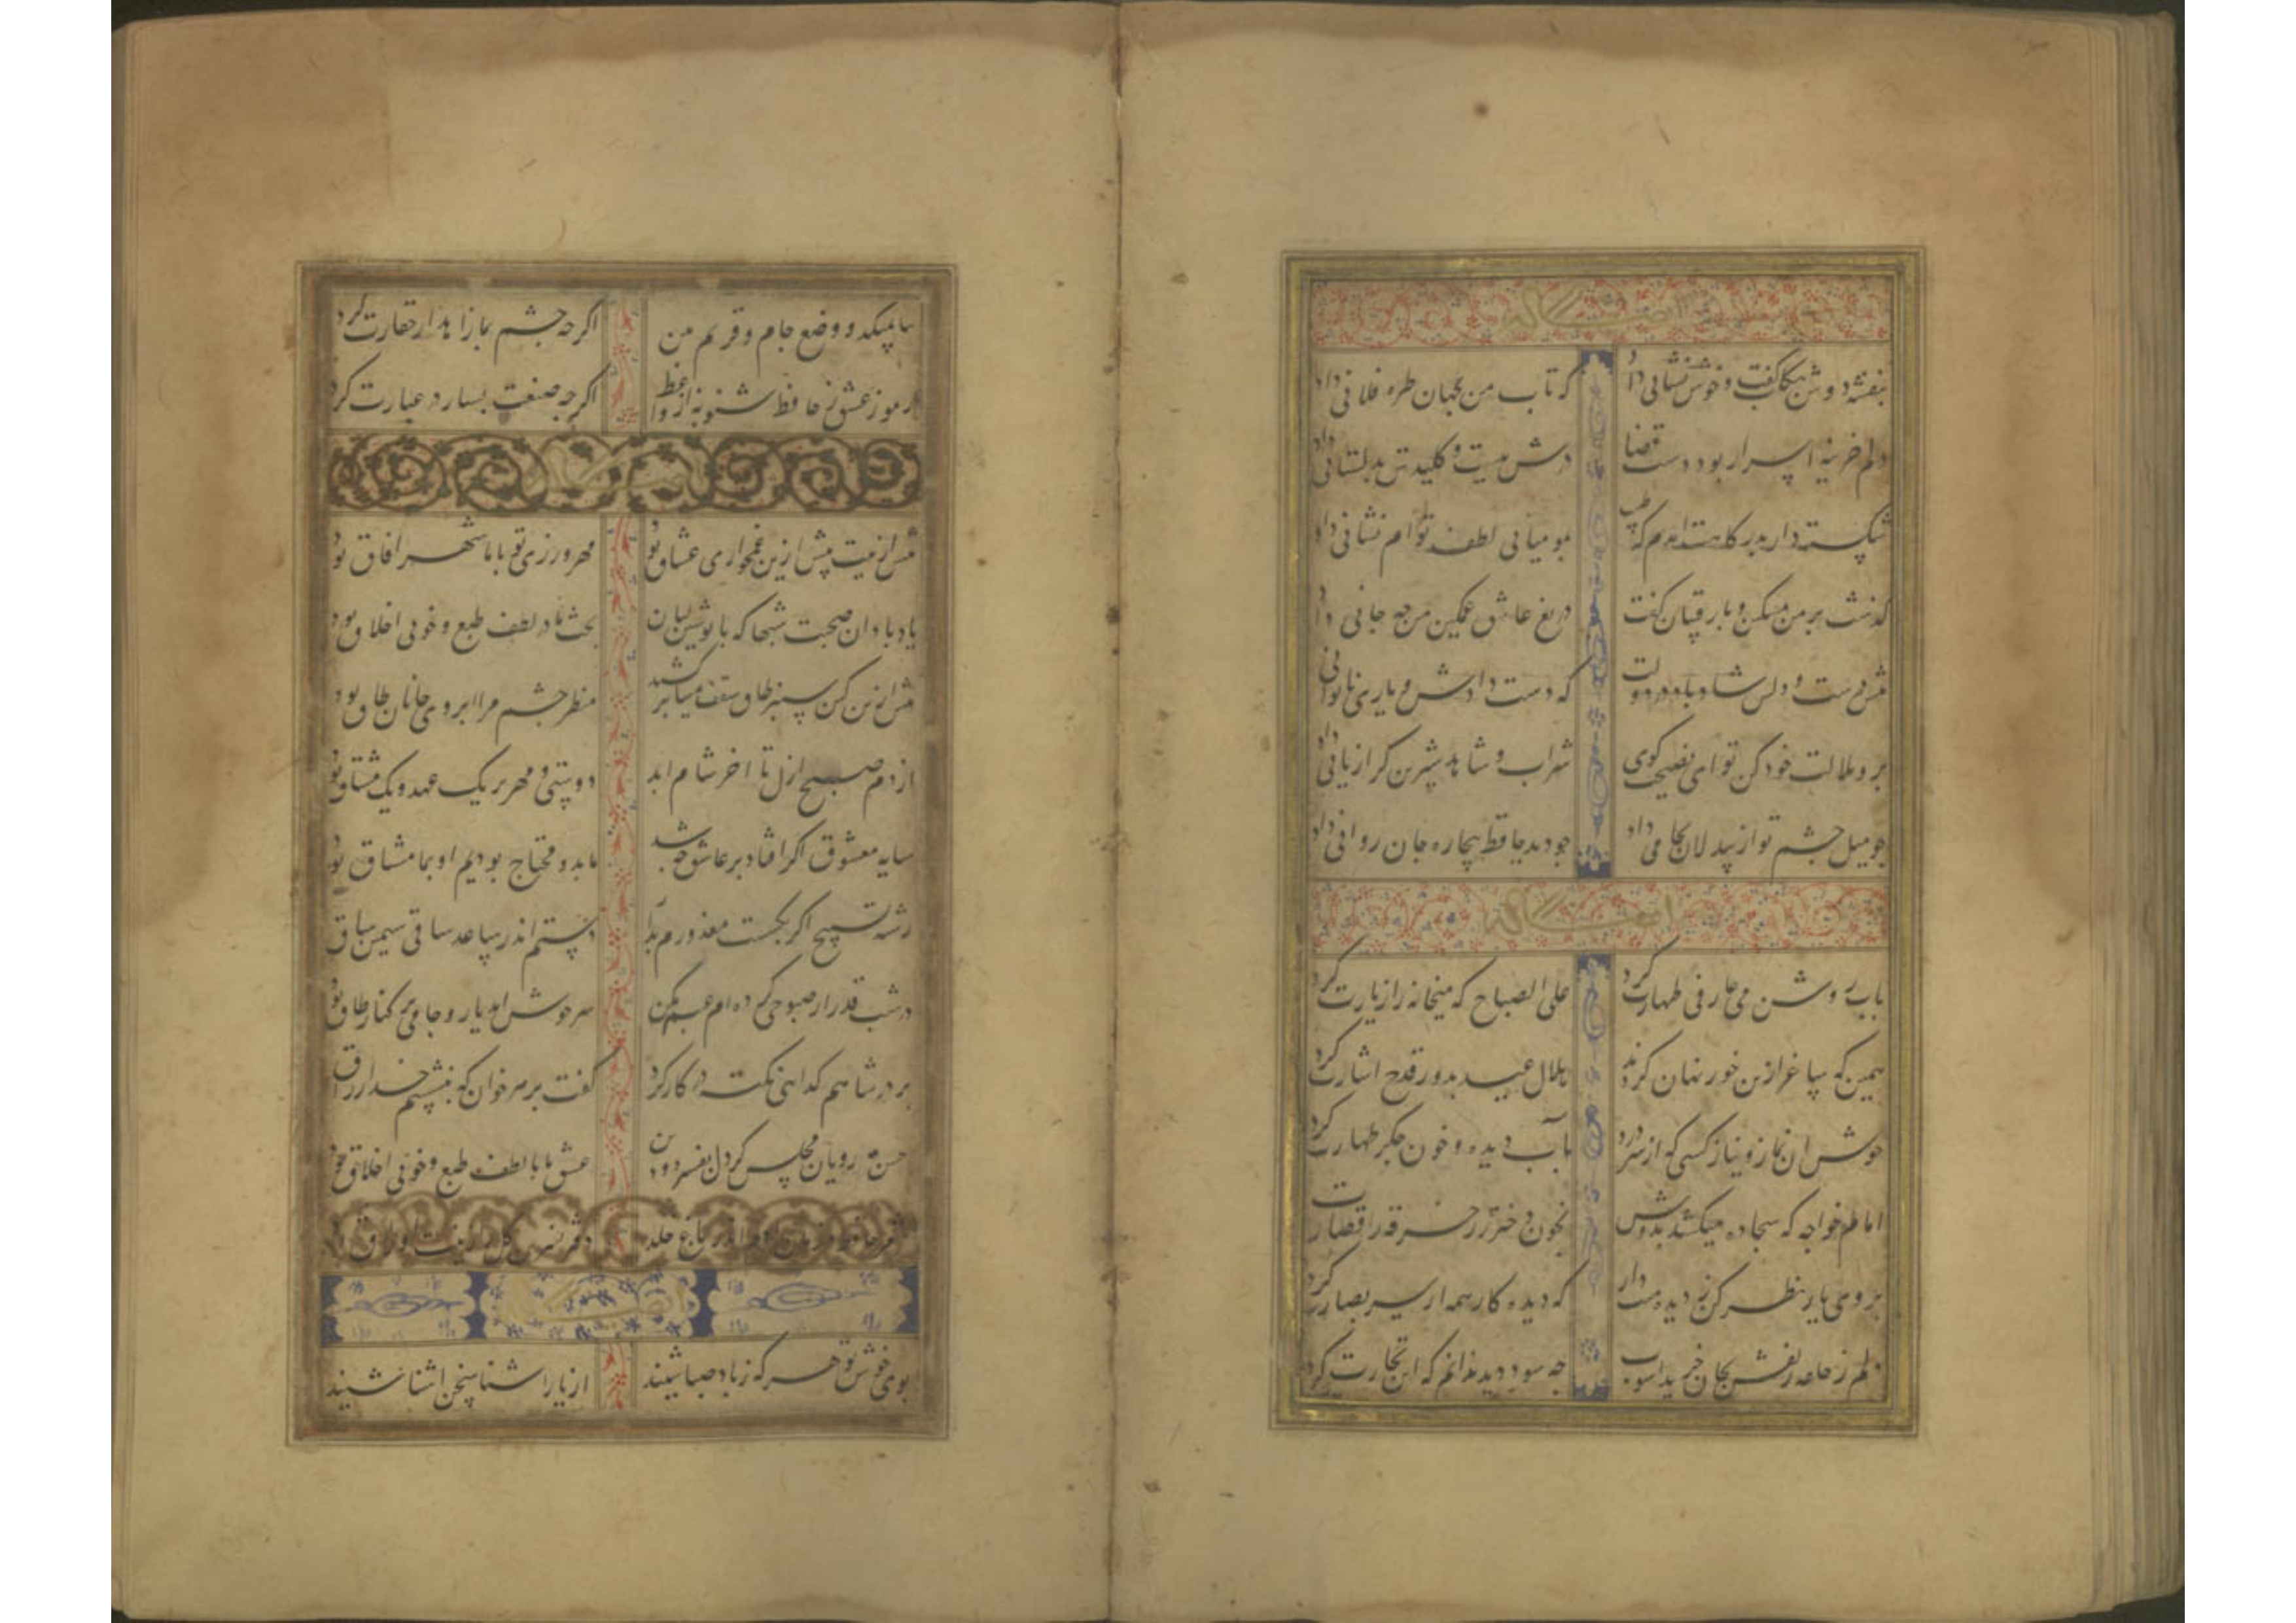 بنفشه دوش بگل گفت و خوش نشانی داد که تاب من بجهان طره فلانی داد
دلم خزینه اسرار بود و دست قضا درش ببست و کلیدش بدلستانی داد
شکسته وار بدرگاهت آمدم که طبیب بمومیایی لطف توام نشانی داد
گذشت بر من مسکین و با رقیبان گفت دریغ عاشق غمگین من چه جانی داد
تنش درست و دلش شاد باد و دولت که دست دادش و یاری ناتوانی
برو ملالت خود کن تو ای نصیحت گوی شراب و شاهد شیرین کرا زیانی داد
چو میل چشم تو از بیدلان می داد چو دید حافظ بیچاره جان روانی داد
بآب روشن می عارفی طهارت کرد علی الصباح که میخانه را زیارت کرد
همین که ساغر زرین خور نهان کردند هلال عید بدور قدح اشارت کرد
خوش آن نماز و نیاز کسی که از سر درد بآب دیده و خون جگر طهارت کرد
امام خواجه که سجاده میکشد بدوش بخون دختر رز خرقه را قصارت
بروی یار نظر کن ز دیده منت دار که دیده کار همه از سر بصارت کرد
دلم ز حلقه زلفش بجان خرید آشوب چه سود دید ندانم که این تجارت کرد
اگر چه چشم بما زاهد از حقارت کرد
رموز عشق ز حافظ شنو نه از واعظ اگر چه صنعت بسیار در عبارت کرد
پیش ازینت بیش ازین غمخواری عشاق بود مهرورزی تو با ما شهره آفاق بود
یاد باد آن صحبت شبها که با نوشین لبان بحث ما در لطف طبع و خوبی اخلاق بود
پیش ازین کین سبز طاق سقف مینا برکشید منظر چشم مرا ابروی جانان طاق بود
از دم صبح ازل تا آخر شام ابد دوستی و مهر بر یک عهد و یک میثاق بود
سایه معشوق اگر افتاد بر عاشق چه شد ما بدو محتاج بودیم او بما مشتاق بود
رشته تسبیح اگر بگسست معذورم بدار دستم اندر ساعد ساقی سیمین ساق
در شب قدر ار صبوحی کرده ام عیبم مکن سر خوش آمد یار و جامی بر کنار طاق بود
بر در شاهم گدایی نکته در کار کرد گفت بر هر خوان که بنشستم خدا رزاق
حسن مه رویان مجلس گرچه دل عشق ما با لطف طبع و خوبی اخلاق
شعر حافظ در زمان آدم اندر باغ خلد دفتر نسرین و گل را زینت اوراق بود
بوی خوش تو هر که ز باد صبا شنید از یار آشنا سخن آشنا شنید